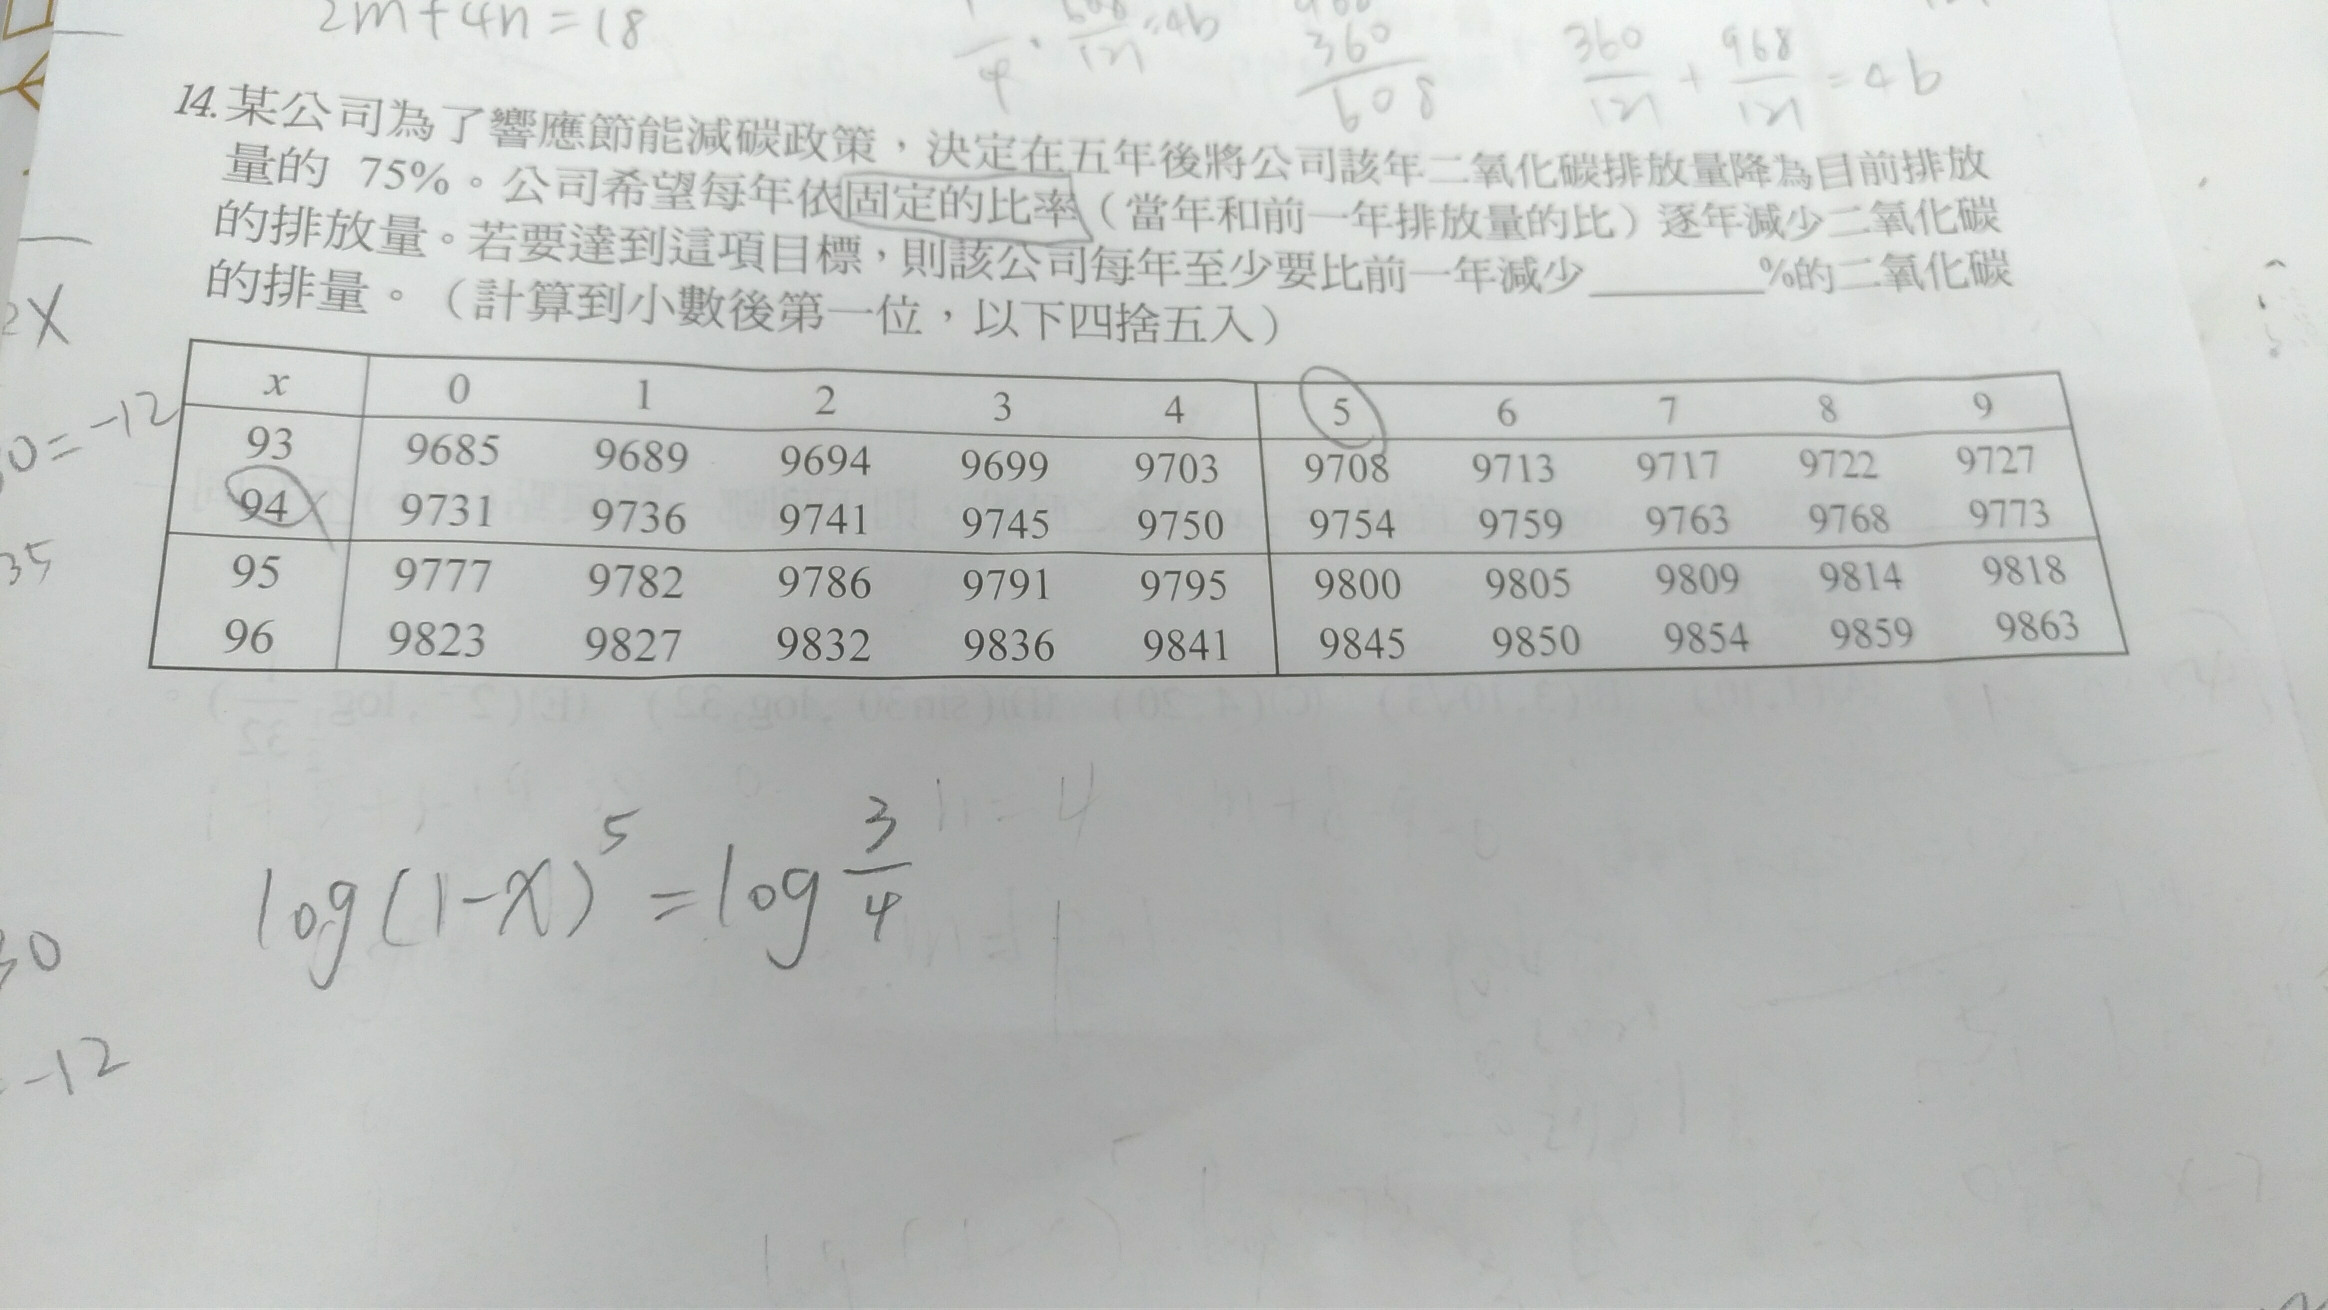 2m+4n=18
360/608
360/121 + 968/121 = 4b
14.某公司為了響應節能減碳政策，決定在五年後將公司該年二氧化碳排放量降為目前排放
量的 75%。公司希望每年依固定的比率（當年和前一年排放量的比）逐年減少二氧化碳
的排放量。若要達到這項目標，則該公司每年至少要比前一年減少______%的二氧化碳
的排量。（計算到小數後第一位，以下四捨五入）
x 0 1 2 3 4 5 6 7 8 9
93 9685 9689 9694 9699 9703 9708 9713 9717 9722 9727
94 9731 9736 9741 9745 9750 9754 9759 9763 9768 9773
95 9777 9782 9786 9791 9795 9800 9805 9809 9814 9818
96 9823 9827 9832 9836 9841 9845 9850 9854 9859 9863
2x
0=-12
35
log(1-x)^5 = log 3/4
30
-12